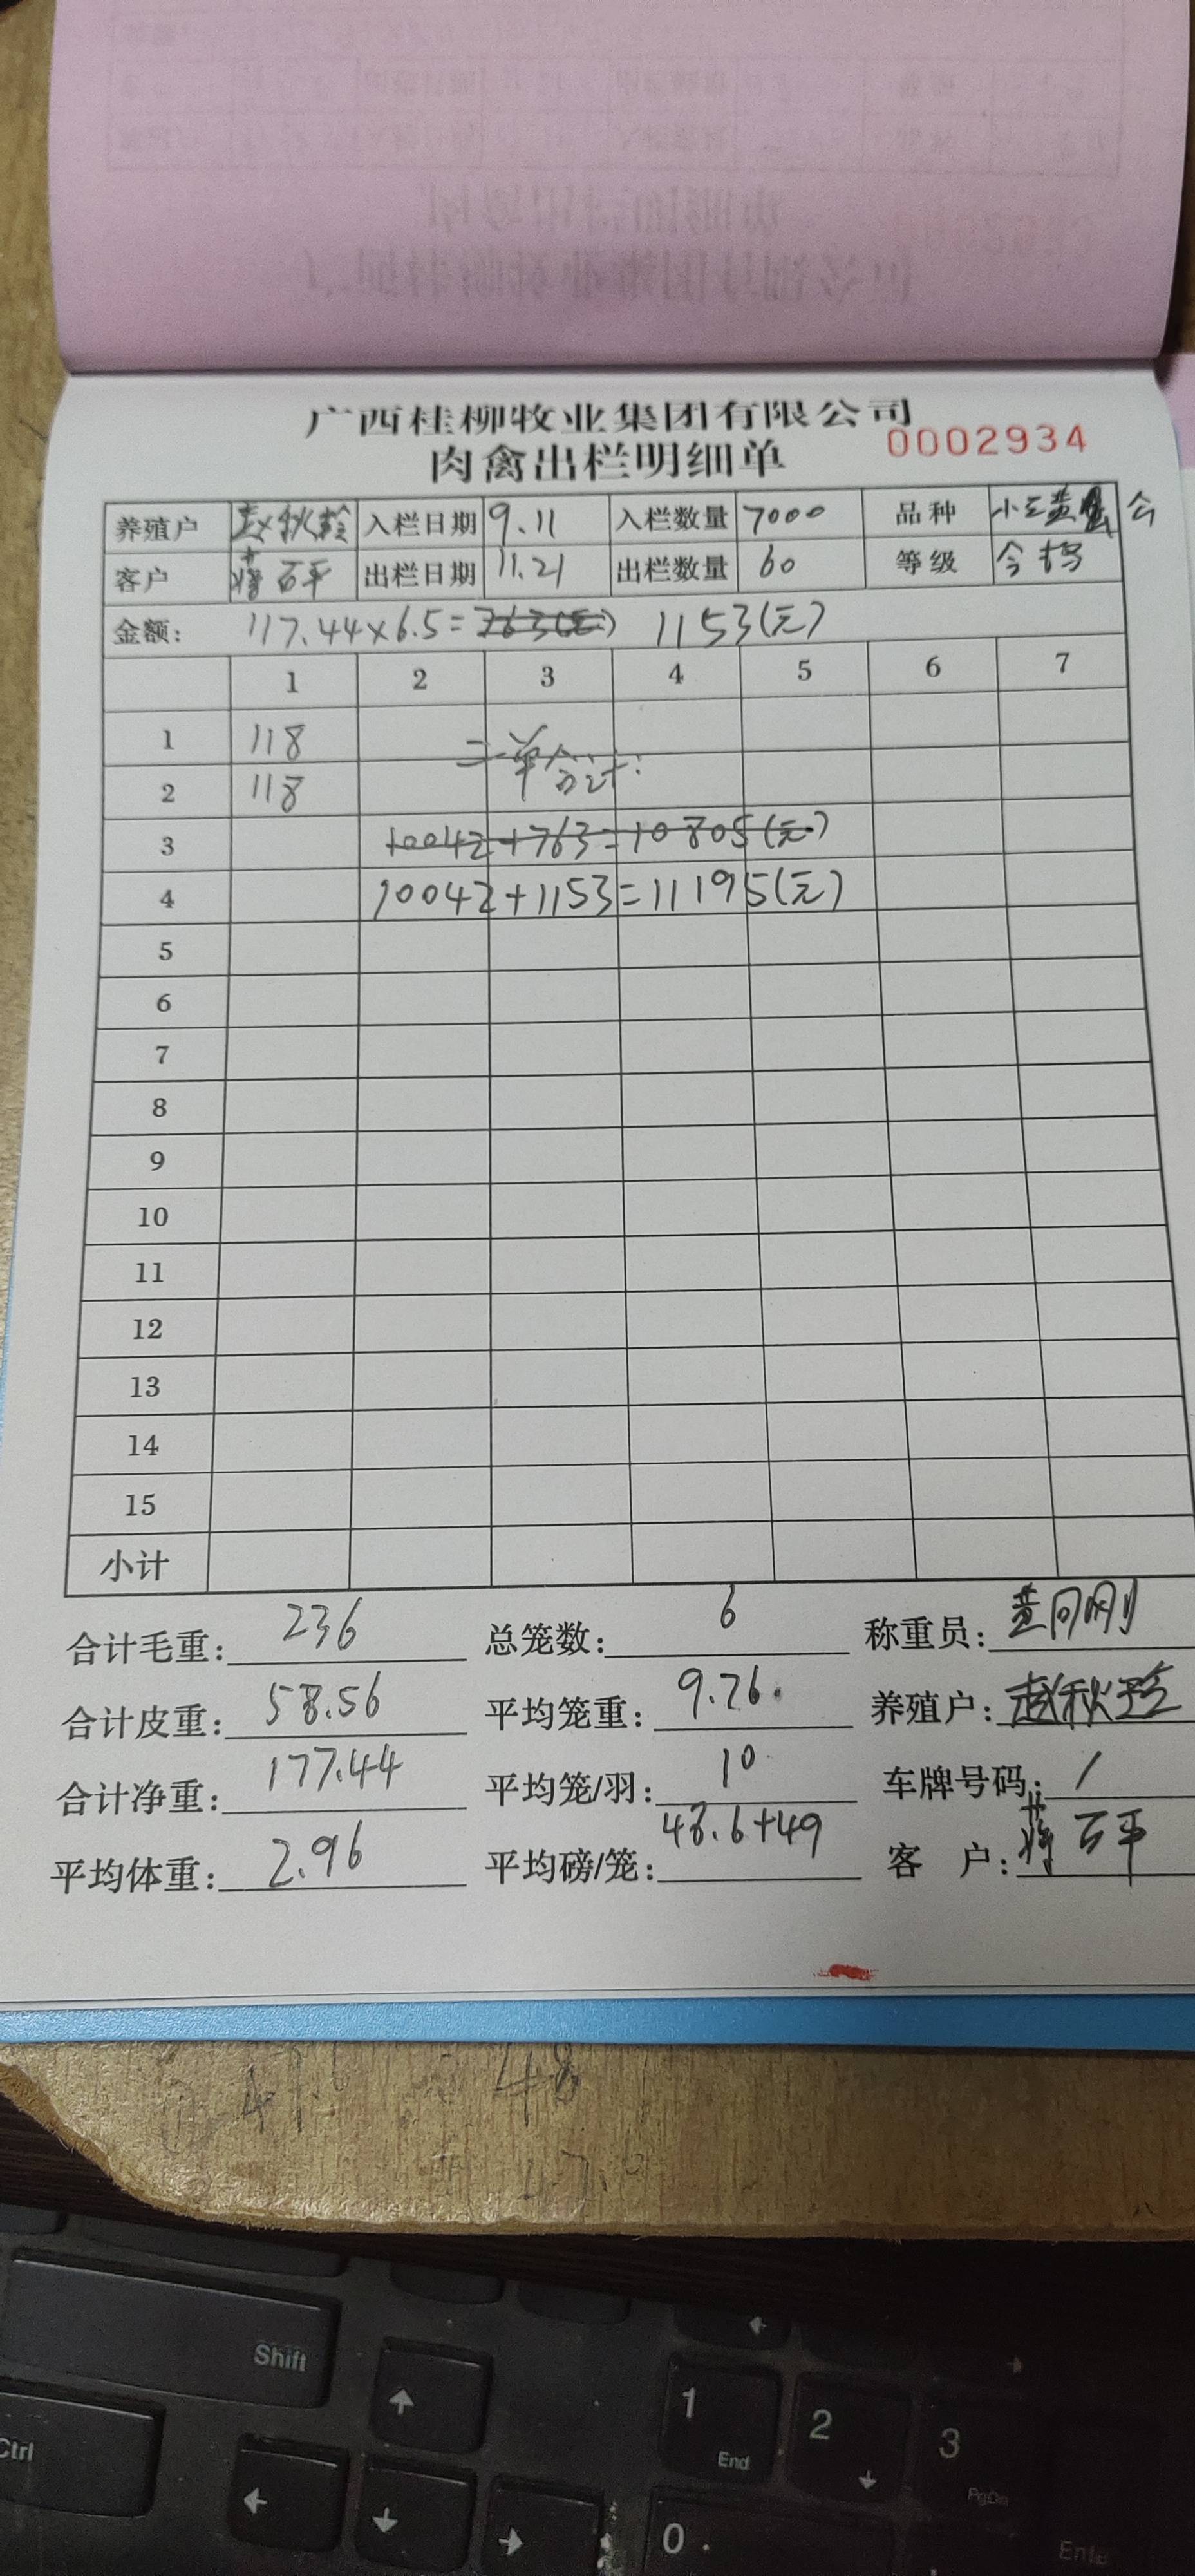 广西桂柳牧业集团有限公司
肉禽出栏明细单 0002934
养殖户 赵秋玲 入栏日期 9.11 入栏数量 7000 品种 小三黄
客户 蒋百平 出栏日期 11.21 出栏数量 60 等级
金额: 117.44×6.5=763(元) 1153(元)
1 2 3 4 5 6 7
1 118
二单合计:
2 118
3 10042+763=10805(元)
4 10042+1153=11195(元)
5
6
7
8
9
10
11
12
13
14
15
小计
合计毛重: 236 总笼数: 6 称重员:
合计皮重: 58.56 平均笼重: 9.76 养殖户: 赵秋玲
合计净重: 177.44 平均笼/羽: 10 车牌号码: /
平均体重: 2.96 平均磅/笼: 48.6+49 客 户: 蒋百平
48
Shift
Ctrl
1
End
2
3
PgDn
0 .
Ente